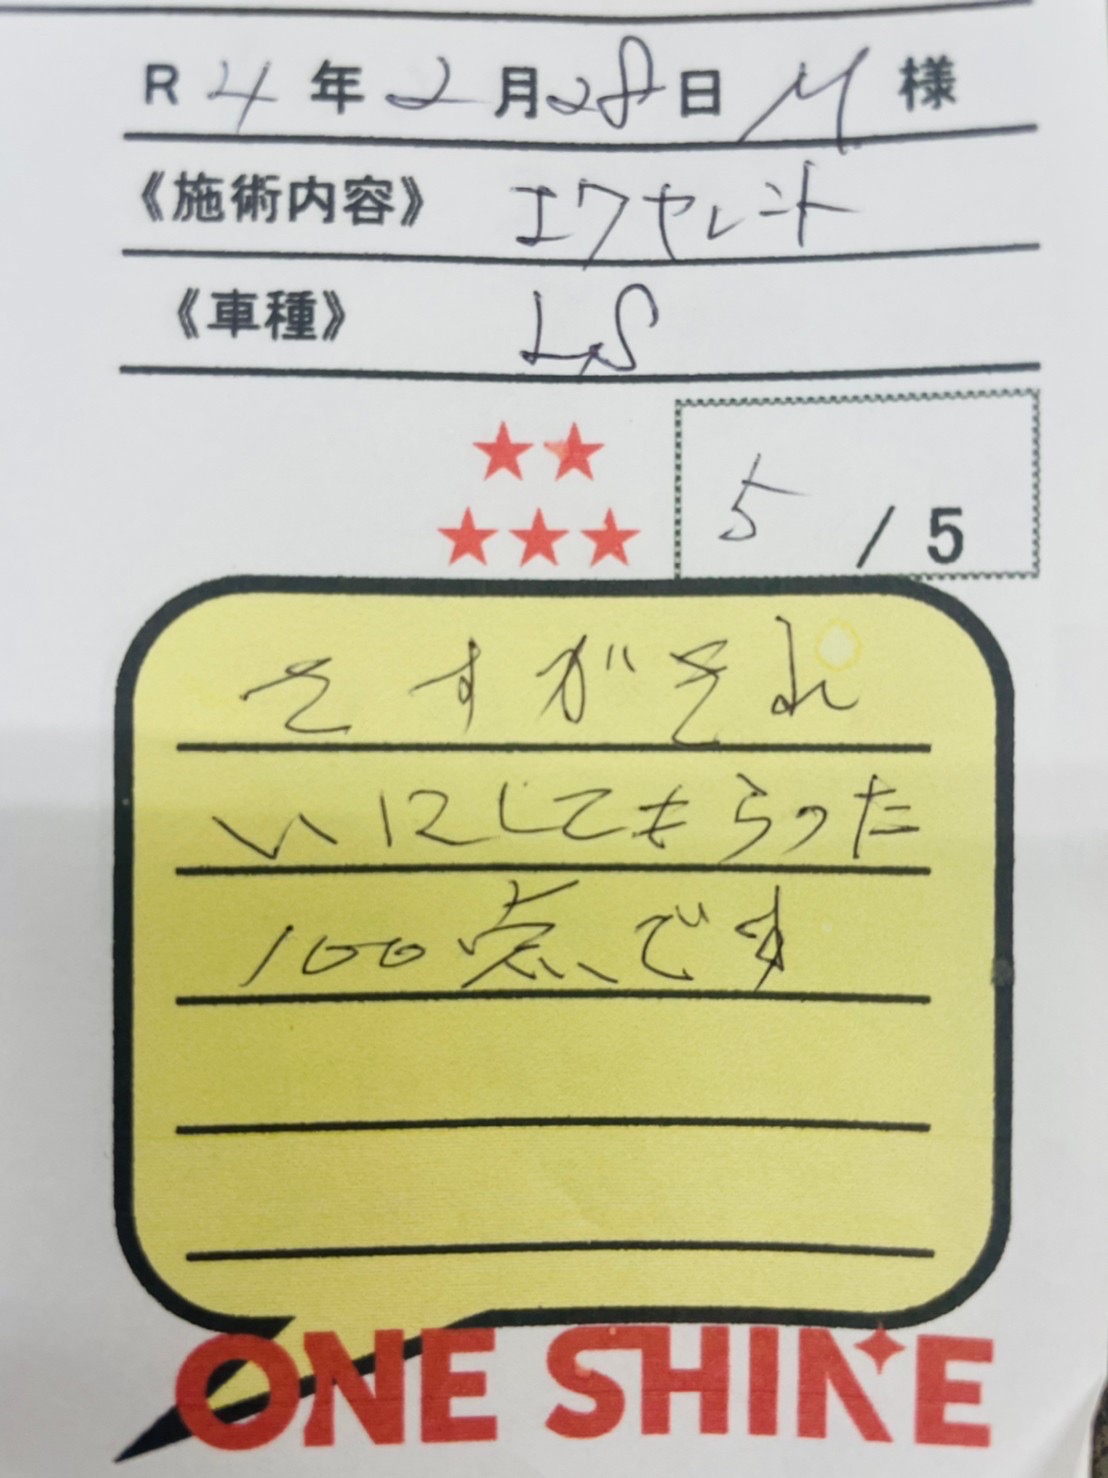 R 4 年 2 月 28 日 M 様
《施術内容》 エクセレント
《車種》 LS
★★
★★★
5 / 5
さすがきれ
いにしてもらった
100点です
ONE SHINE